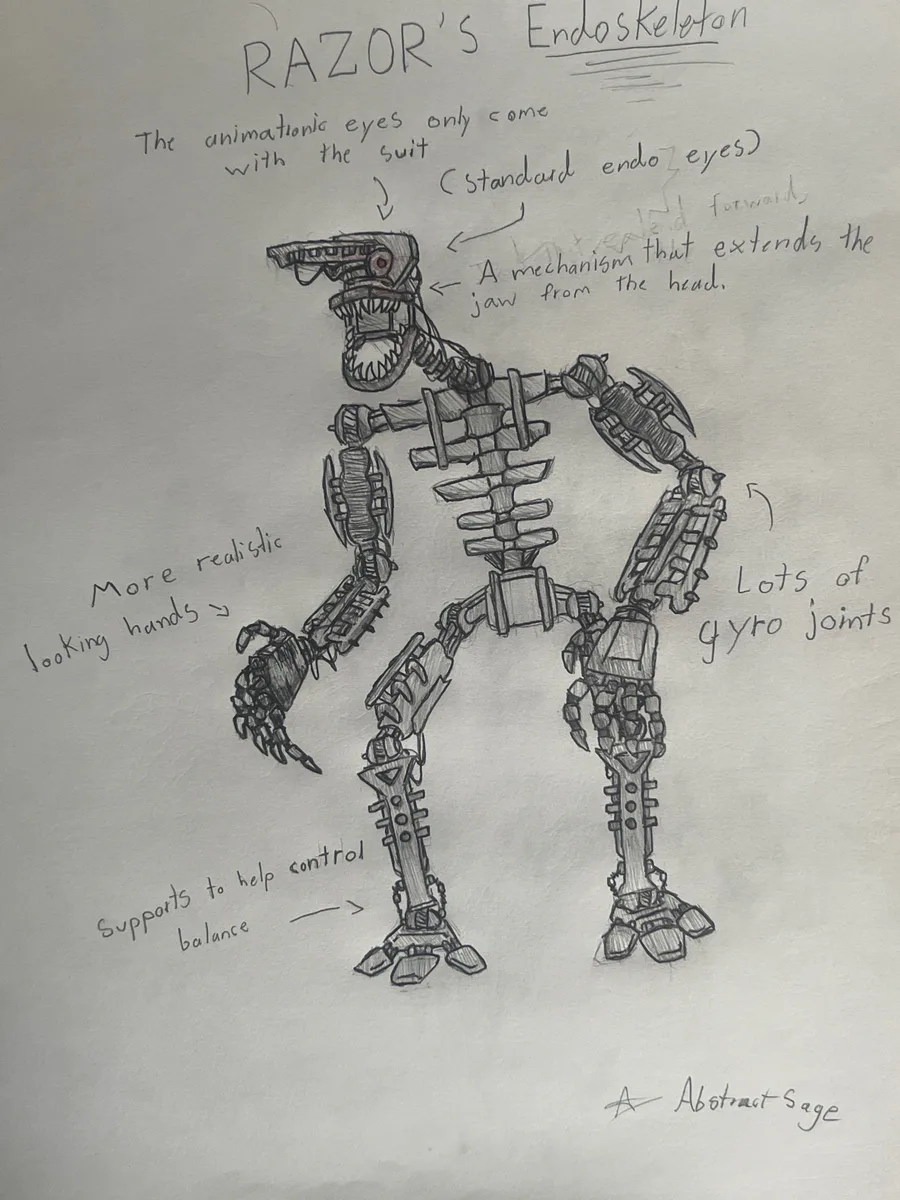 RAZOR'S Endoskeleton
The animationic eyes only come
with the suit
(standard endo eyes)
forward,
A mechanism that extends the
jaw from the head.
More realistic
looking hands
Lots of
gyro joints
Supports to help control
balance
Abstract Sage